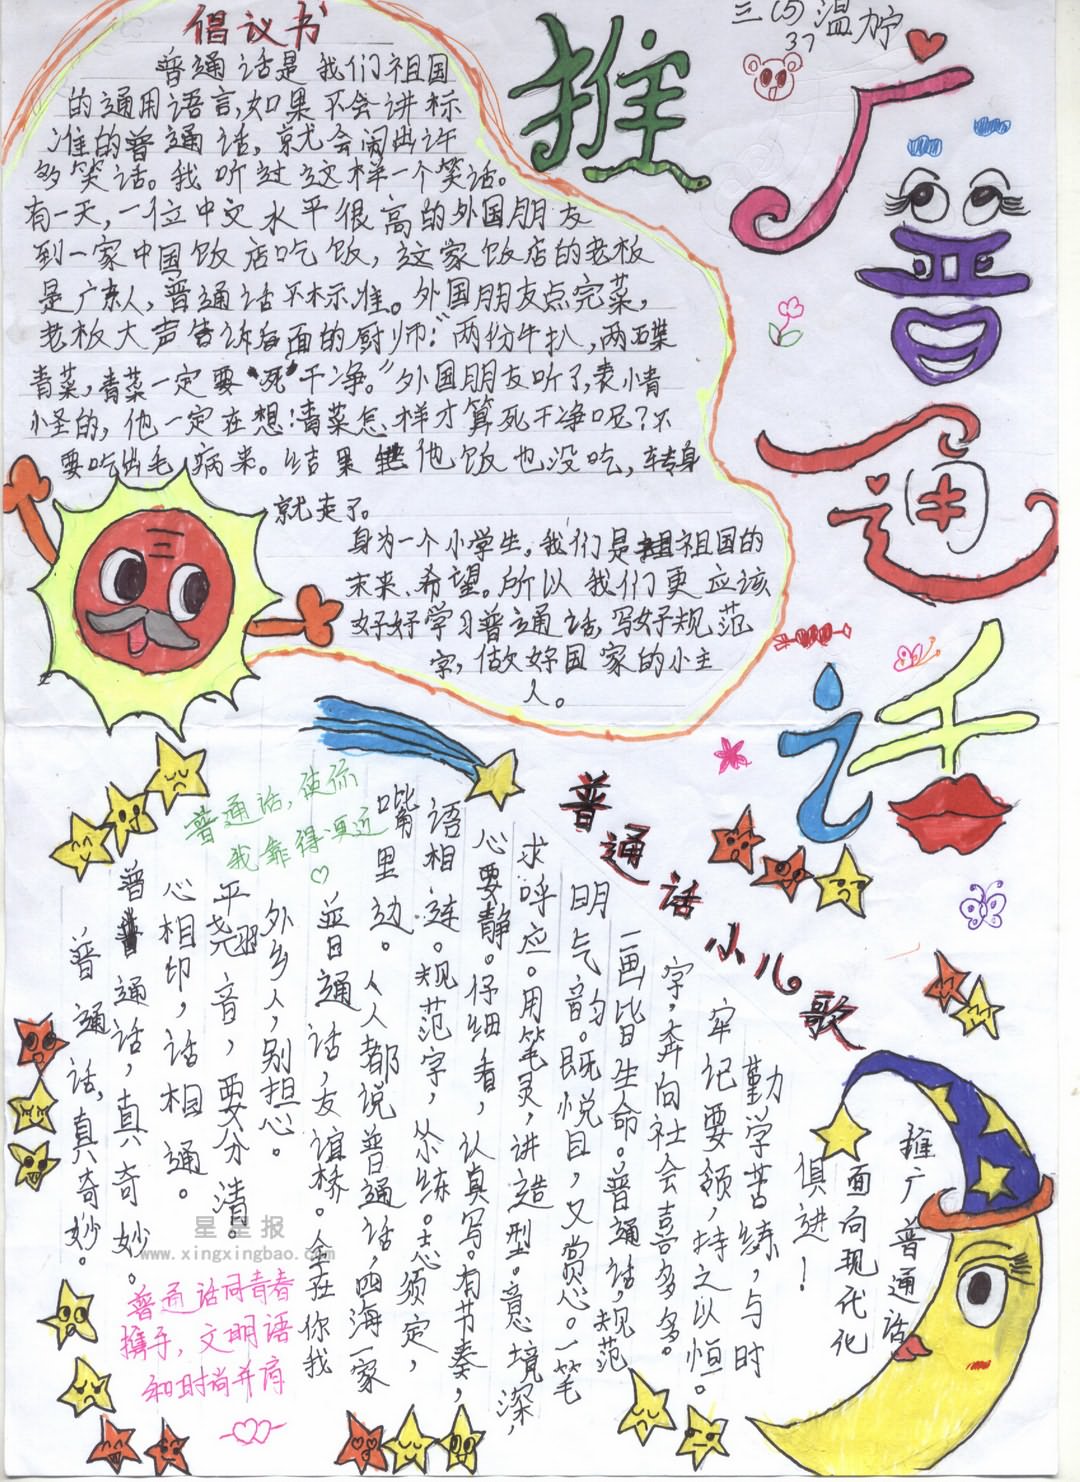 三(5) 温柠
37
倡议书
普通话是我们祖国
的通用语言,如果不会讲标
准的普通话,就会闹出许
多笑话。我听过这样一个笑话。
有一天,一位中文水平很高的外国朋友
到一家中国饭店吃饭,这家饭店的老板
是广东人,普通话不标准。外国朋友点完菜,
老板大声告诉后面的厨师:"两份牛扒,两碟
青菜,青菜一定要"死"干净。"外国朋友听了,表小青
小圣的,他一定在想:青菜怎样才算死干净呢?不
要吃出毛病来。结果他饭也没吃,转身
就走了。
身为一个小学生,我们是祖国的
未来、希望。所以我们更应该
好好学习普通话,写好规范
字,做好国家的小主
人。
推
广
普
通
话
普通话,使你
我靠得更近
普通话小儿歌
普通话,真奇妙。
普通话,真奇妙。
心相印,话相通。
平翘音,要分清。
外乡人,别担心。
普通话,友谊桥。全在你我
嘴里边。人人都说普通话,四海一家
语相连。规范字,练。志须定,
心要静。仔细看,认真写。有节奏,
求呼应。用笔灵,讲造型。意境深,
明气韵。既悦目,又赏心。一笔
一画皆生命。普通话,规范
字,奔向社会喜多多。
牢记要领,持之以恒。
勤学苦练,与时
俱进!
推广普通话
面向现代化
普通话同青春
携手,文明语
和时尚并肩
星星报
www.xingxingbao.com